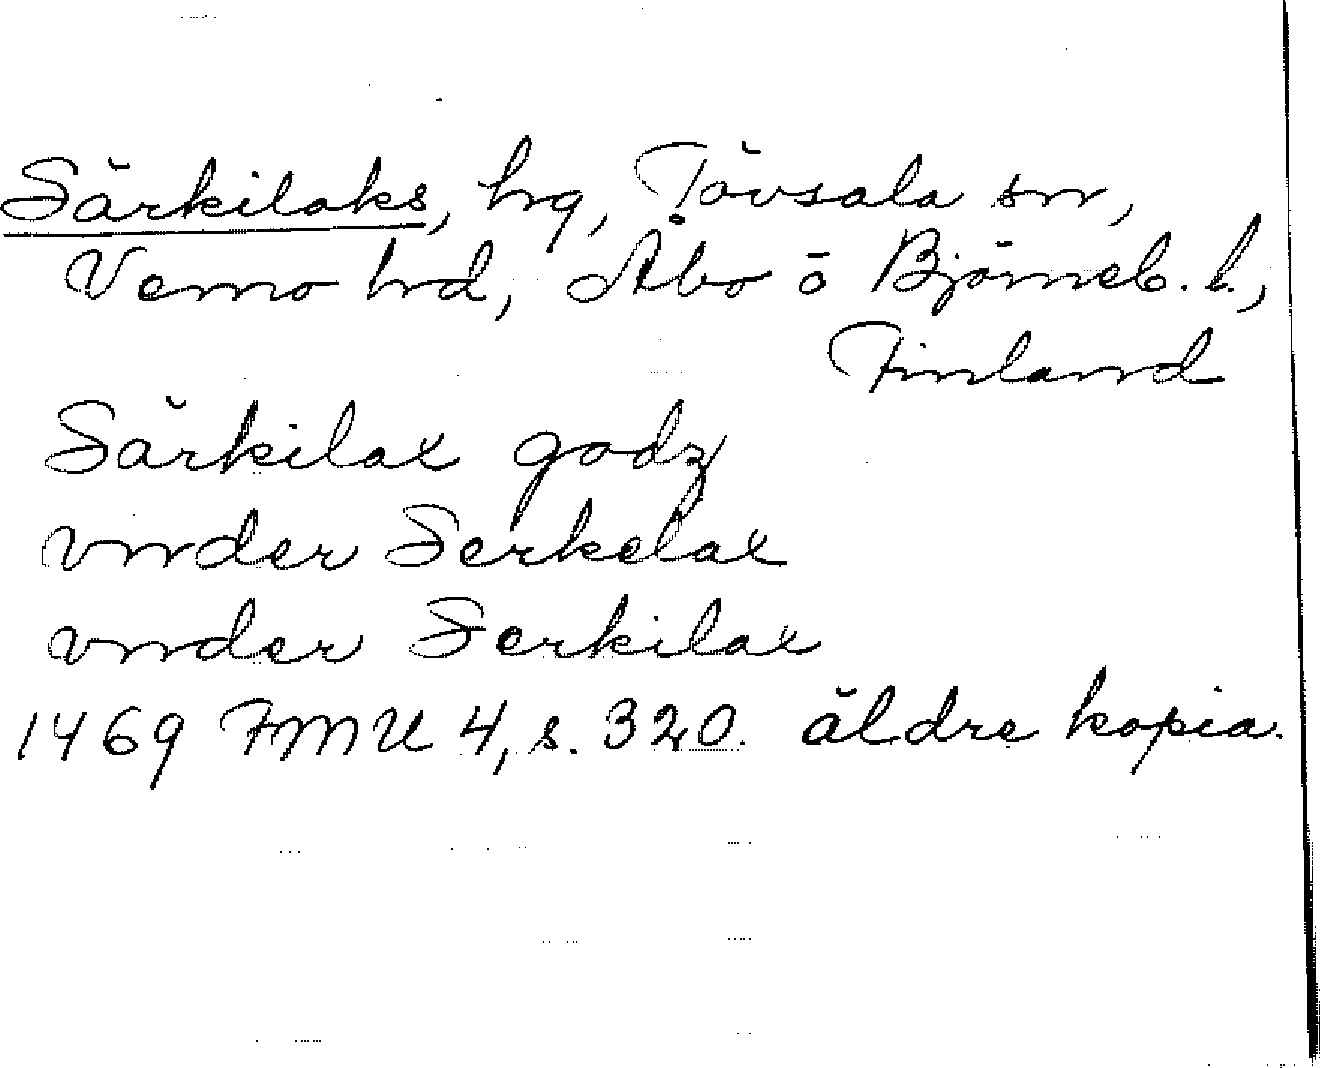 Särkilaks, hg, Tövsala sn,
Vemo hd, Åbo o Björneb. l.,
Finland
Särkilax godz
vnder Serkelax
vnder Serkilax
1469 FMU 4, s. 320. äldre kopia.